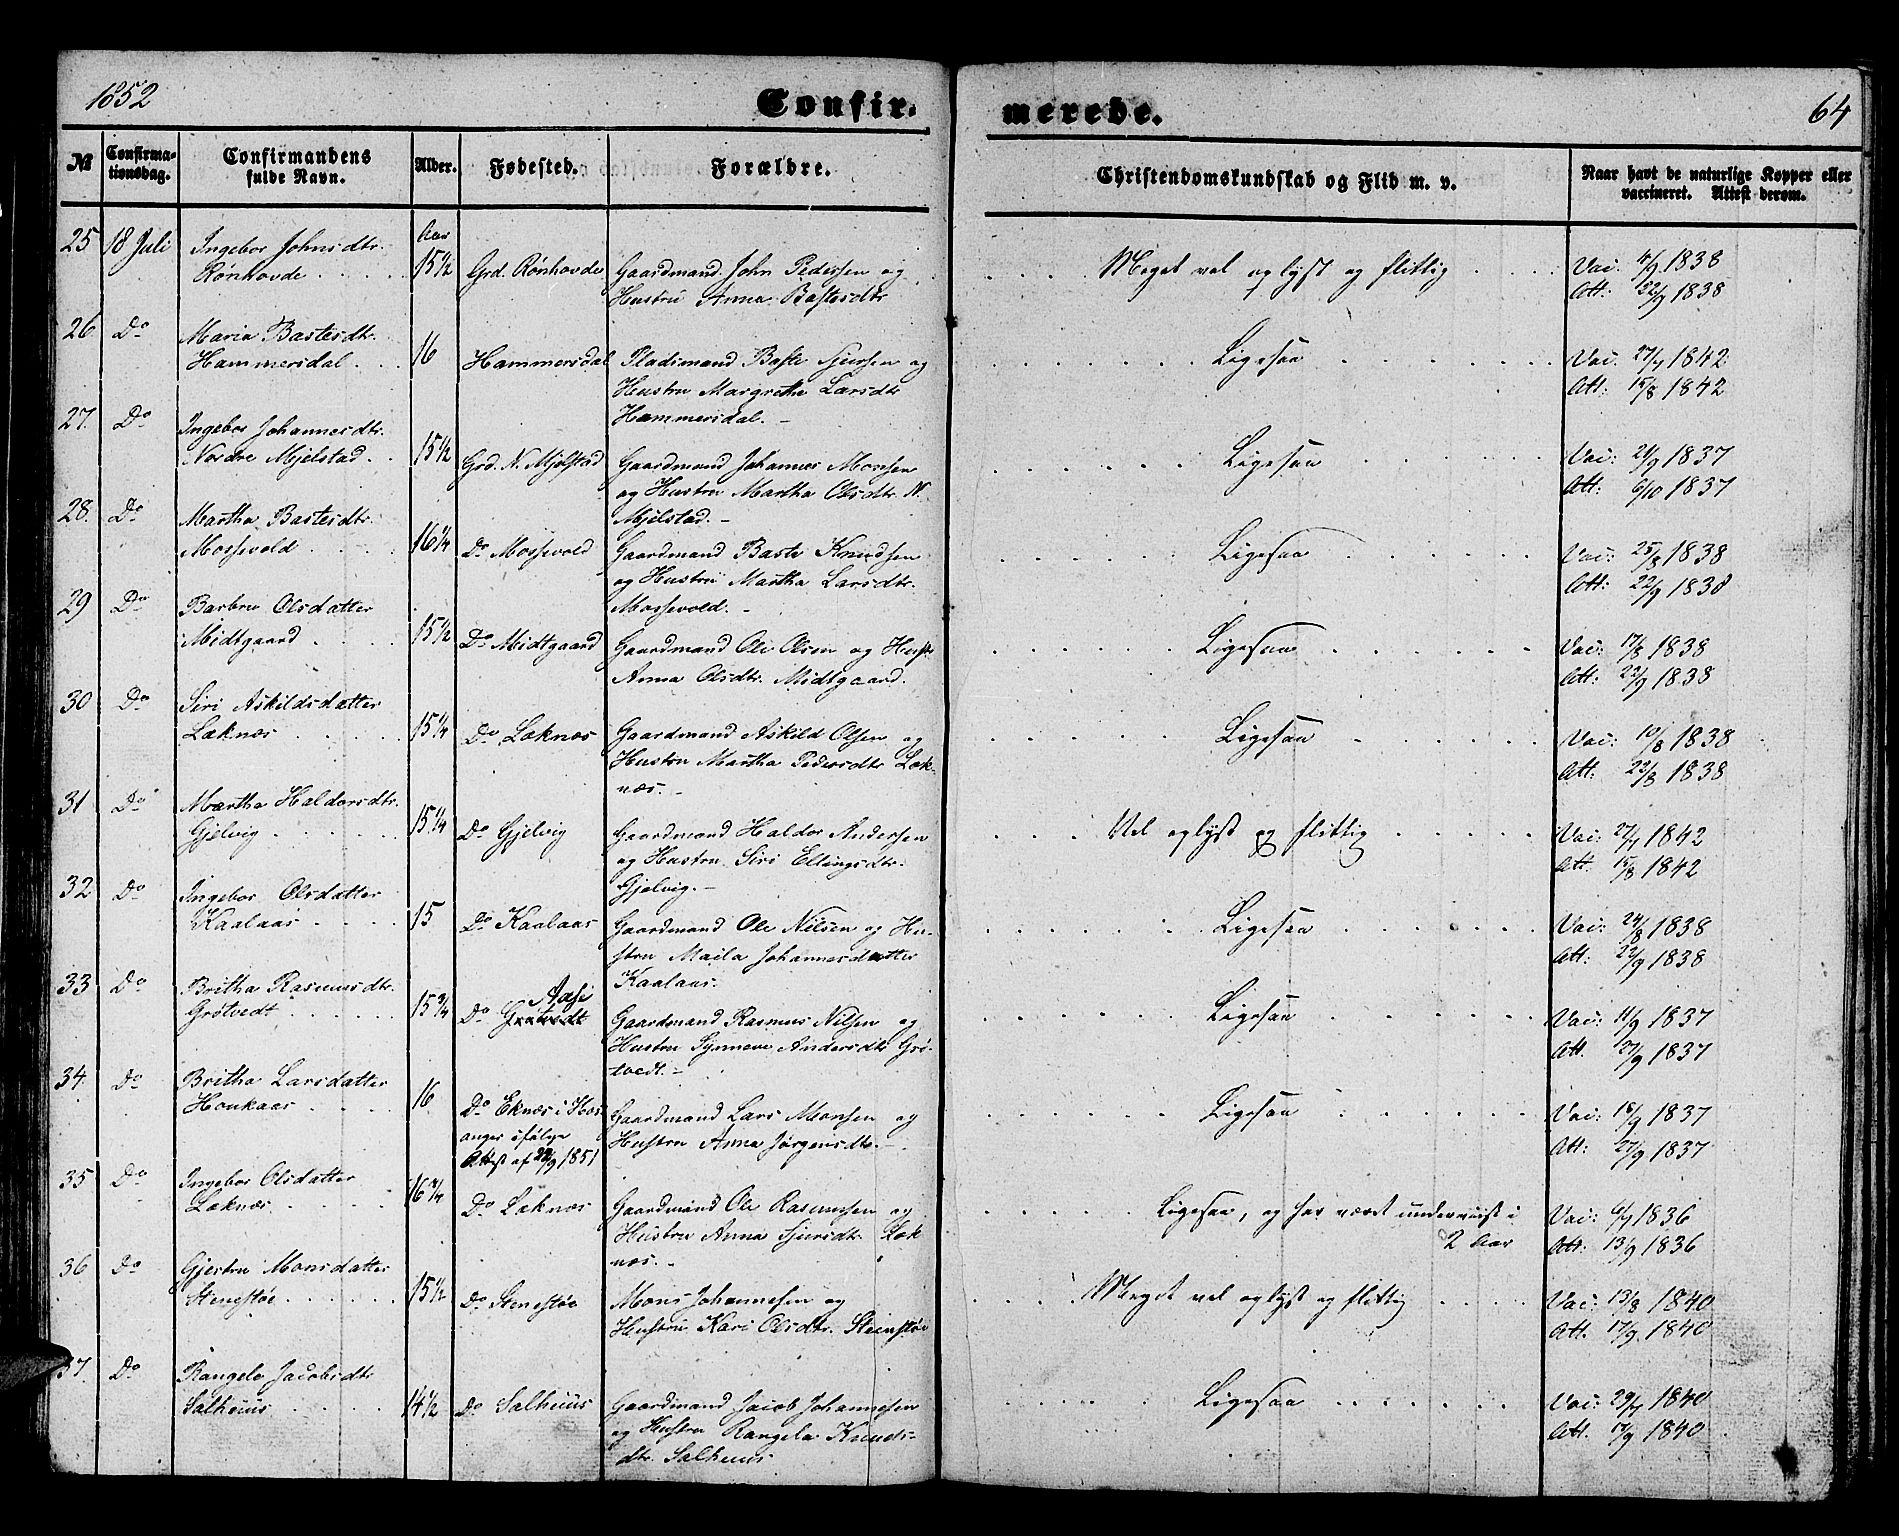 1852
Confir- merede.
64
№ Confirma-tionsdag. Confirmandens fulde Navn. Alder. Fødested. Forældre. Christendomskundskab og Flid m. v. Naar havt de naturlige Kopper eller vaccineret. Attest derom.
25 18 Juli Ingebor Johnsdtr. Rønhovde Aar 15 1/2 Grd. Rønhovde Gaardmand John Pedersen og Hustru Anna Bastesdtr Meget vel oplyst og flittig Vac. 4/9 1838 Att: 22/9 1838
26 Do Maria Bastesdtr. Hammersdal 16 Hammersdal Pladsmand Baste Sjursen og Hustru Margrethe Larsdtr Hammersdal. Ligesaa Vac. 27/7 1842 Att: 15/8 1842
27. Do Ingebor Johannesdtr. Nordre Mjelstad 15 1/2 Grd. N. Mjelstad Gaardmand Johannes Monsen og Hustru Martha Olsdtr. N. Mjelstad. Ligesaa Vac: 21/9 1837 Att: 6/10 1837
28. Do Martha Bastesdtr. Mossevold 16 1/4 Do Mossevold Gaardmand Baste Knudsen og Hustru Martha Larsdtr. Mossevold. Ligesaa Vac: 25/8 1838 Att: 22/9 1838
29 Do Barbru Olsdatter Midtgaard 15 1/2 Do Midtgaard Gaardmand Ole Olsen og Hustr Anna Olsdtr. Midtgaard. Ligesaa Vac: 17/8 1838 Att: 22/9 1838
30 Do Siri Askildsdatter Loknæs 15 1/4 Do Loknæs Gaardmand Askild Olsen og Hustru Martha Pedersdtr Lok-næs. Ligesaa Vac: 10/8 1838 Att: 22/8 1838
31 Do Martha Haldorsdtr. Gjelvig 15 1/4 Do Gjelvig Gaardmand Haldor Andersen og Hustru Siri Ellingsdtr. Gjelvig. Vel oplyst og flittig Vac: 27/7 1842 Att. 15/8 1842
32 Do Ingebor Olsdatter Kaalaas 15 Do Kaalaas Gaardmand Ole Nilsen og Hu-stru Maila Johannesdatter Kaalaas. Ligesaa Vac: 24/8 1838 Att: 22/9 1838
33 Do Britha Rasmusdtr. Grøtvedt 15 3/4 Do Grøtvedt Gaardmand Rasmus Nilsen og Hustru Synneve Andersdtr Grø-tvedt. Ligesaa Vac: 11/9 1837 Att. 27/9 1837
34. Do Britha Larsdatter Houkaas 16 Do Eknæs i Hos-anger ifølge Attest af 22/9 1851 Gaardmand Lars Monsen og Hustru Anna Jørgensdtr. Ligesaa Vac: 18/9 1837 Att: 27/9 1837
35 Do Ingebor Olsdatter Loknæs 16 3/4 Do Loknæs Gaardmand Ole Rasmussen og Hustru Anna Sjursdtr. Lok næs. Ligesaa, og har været underviist i 2 Aar Vac: 6/7 1836 Att: 13/9 1836
36 Do Gjertru Monsdatter Stenestøe 15 1/2 Do Stenestøe Mons Johannesen og Hustru Kari Olsdtr. Steinstøe Meget vel oplyst og flittig Vac: 13/8 1840 Att. 17/9 1840
37. Do Rangele Jacobsdtr Salhuus 14 1/2 Do Salhuus Gaardmand Jacob Johannesen og Hustru Rangela Knuds-dtr. Salhuus Ligesaa Vac: 29/7 1840 Att. 17/9 1840